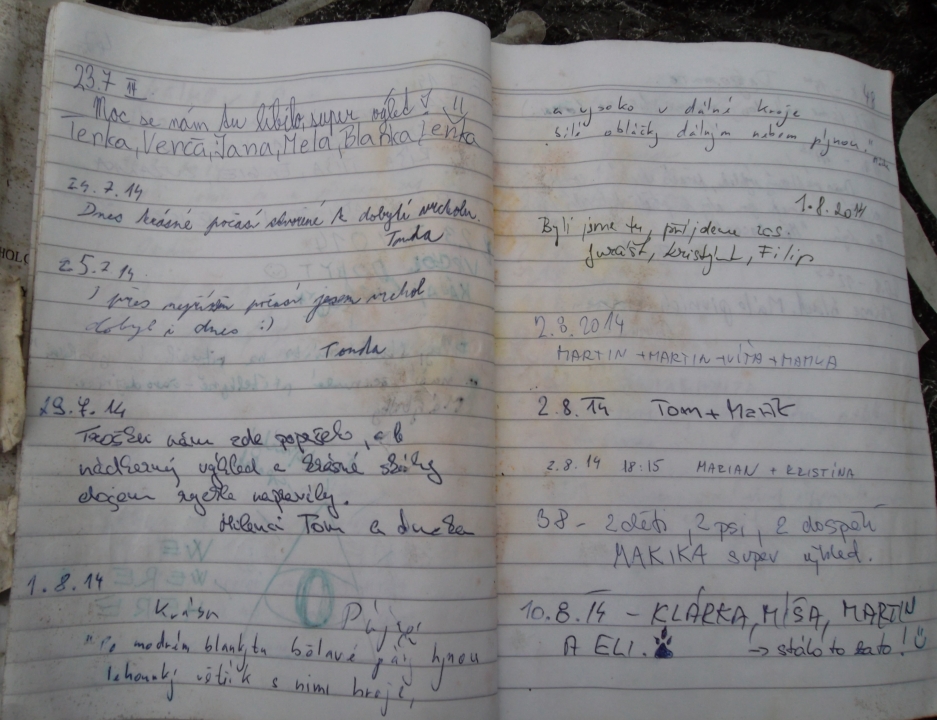 23.7 14
Moc se nám tu líbilo, super výhled !!
Lenka, Verča, Jana, Mela, Blaňka, Lenka
24.7.14
Dnes krásné počasí stvořené k dobytí vrcholu.
Tonda
25.7 14.
I přes nepřízeň počasí jsem vrchol
dobyl i dnes :)
Tonda
29.7.14
Trošku nám zde popršelo, ale
nádherný výhled a krásné skály
dojem rychle napravily.
Milenci Tom a
1.8.14
Krása
"Po modrém blankytu bělavé páry hynou
lehounký větřík s nimi hraje,
a vysoko v dálné kraje
bílé obláčky dálným nebem plynou."
1.8.2014
Byli jsme tu, přijdeme zas.
Kristýna, Filip
2.8.2014
MARTIN + MARTIN + VÍŤA + MAMKA
2.8.14 Tom + Mark
2.8.14 18:15 MARIAN + KRISTÍNA
3 8 - 2 děti, 2 psi, 2 dospělí
MAKIKA super výhled.
10.8.14 - KLÁRKA, MÍŠA, MARTIN
A ELI. → stálo to zato!
WE
WERE
HERE